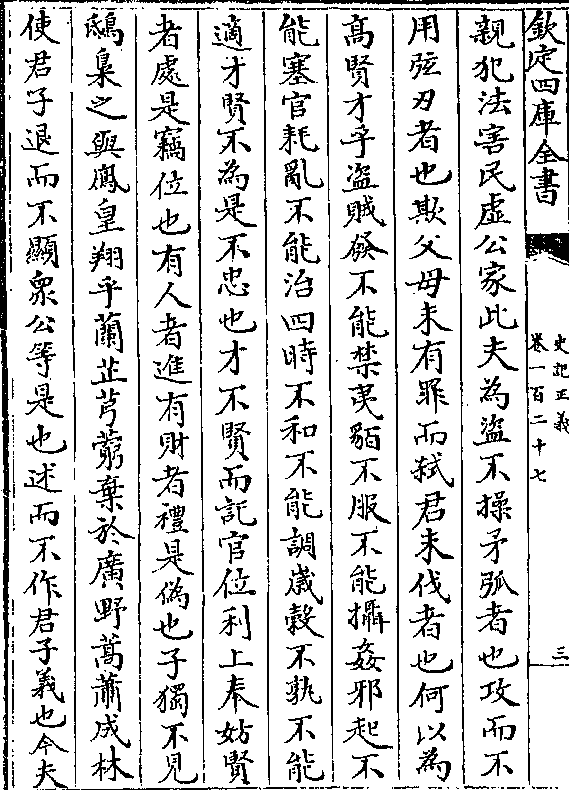 欽定四庫全書
史記正義
卷一百二十七
三
親犯法害民虛公家此夫為盜不操矛弧者也攻而不
用弦刃者也欺父母未有罪而弑君未伐者也何以為
高賢才乎盜賊發不能禁夷貊不服不能攝姦邪起不
能塞官耗亂不能治四時不和不能調歳穀不孰不能
適才賢不為是不忠也才不賢而託官位利上奉妨賢
者處是竊位也有人者進有財者禮是偽也子獨不見
鴟梟之與鳳皇翔乎蘭芷芎藭棄於廣野蒿蕭成林
使君子退而不顯衆公等是也述而不作君子義也今夫